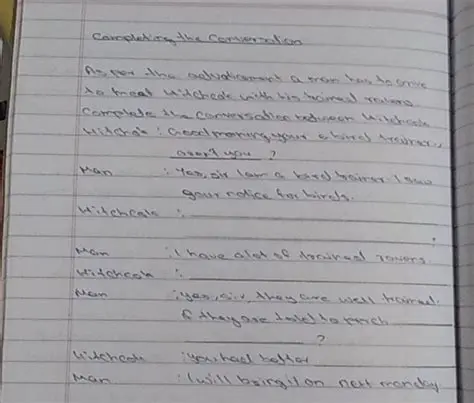 Completing the Conversation
As per the advertisement a man has to come
to meet Hitchcock with his trained ravens
Complete the conversation between Hitchcock
Hitchcock : Good morning, your a bird trainer,
aren't you ?
Man : Yes, sir I am a bird trainer I saw
your notice for birds.
Hitchcock :
Man : I have a lot of trained ravens
Hitchcock :
Man : yes, sir, they are well trained.
If they are told to perch
?
Hitchcock : you had better
Man : I will bring it on next monday